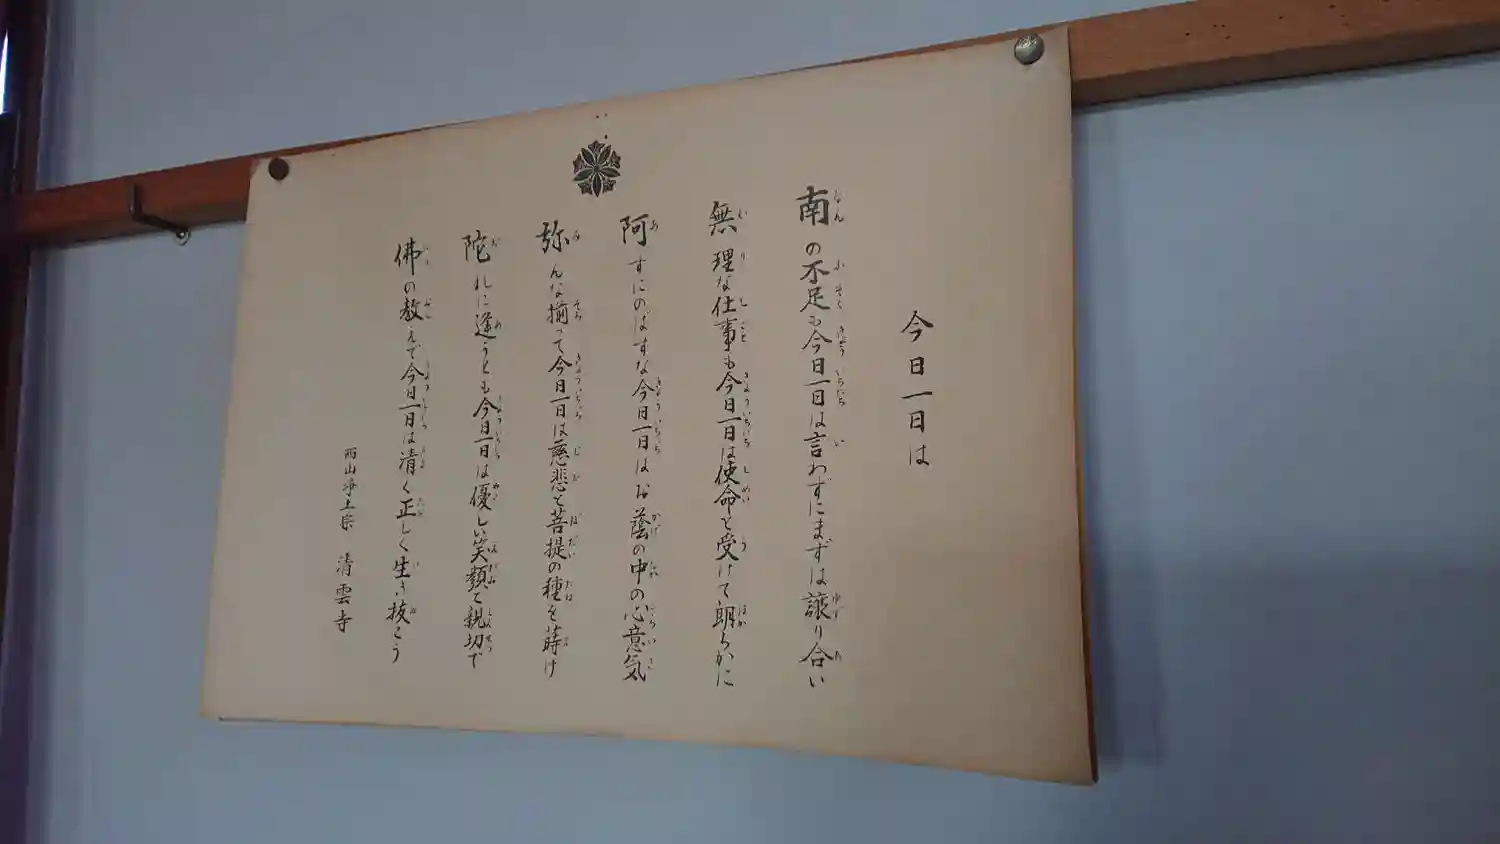 今日一日は
南の不足も今日一日は言わずにまずは譲り合い
無理な仕事も今日一日は使命と受けて朗らかに
阿すにのばすな今日一日はお蔭の中の心意気
弥んな揃って今日一日は慈悲と菩提の種を蒔け
陀れに逢うとも今日一日は優しい笑顔と親切で
佛の教えで今日一日は清く正しく生き抜こう
西山浄土宗 清雲寺